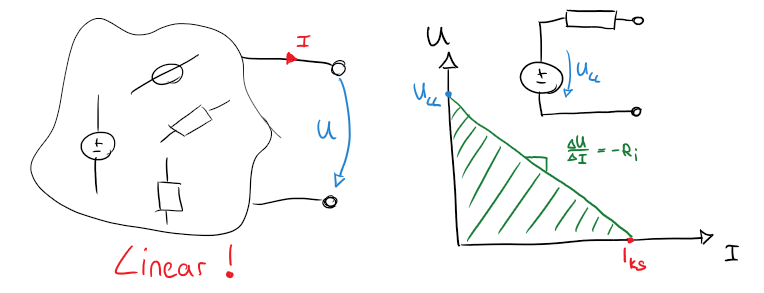 I
U
±
Linear !
U
U_LL
±
U_LL
ΔU/ΔI = -R_i
I_KS
I